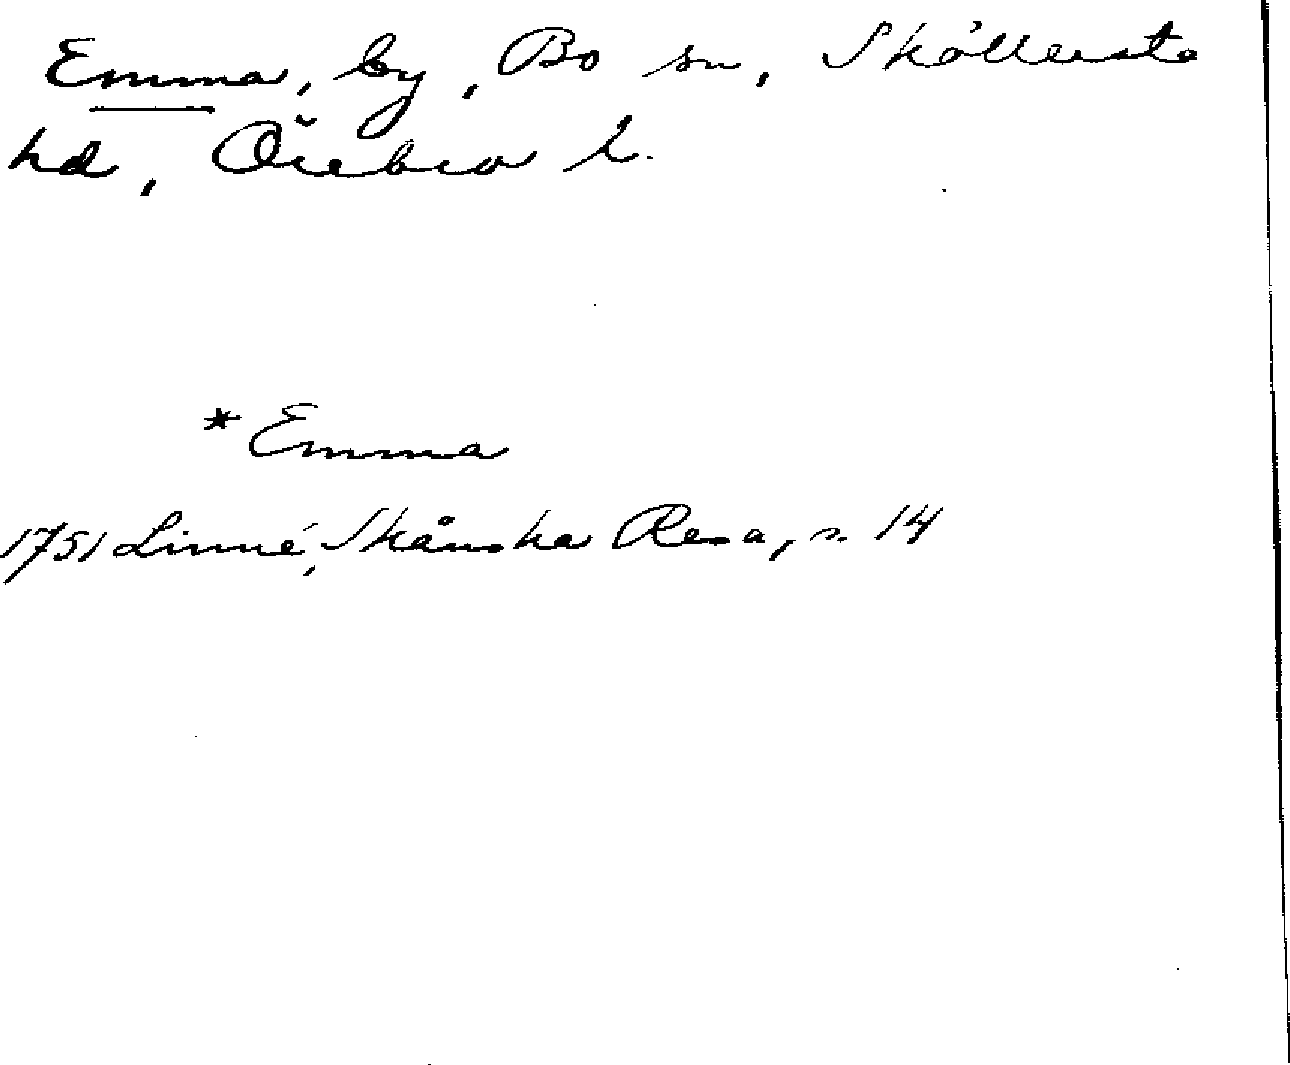 Emma, by, Bo sn, Sköllersta
hd, Örebro l.
*Emma
1751 Linné, Skånska Resa, s. 14